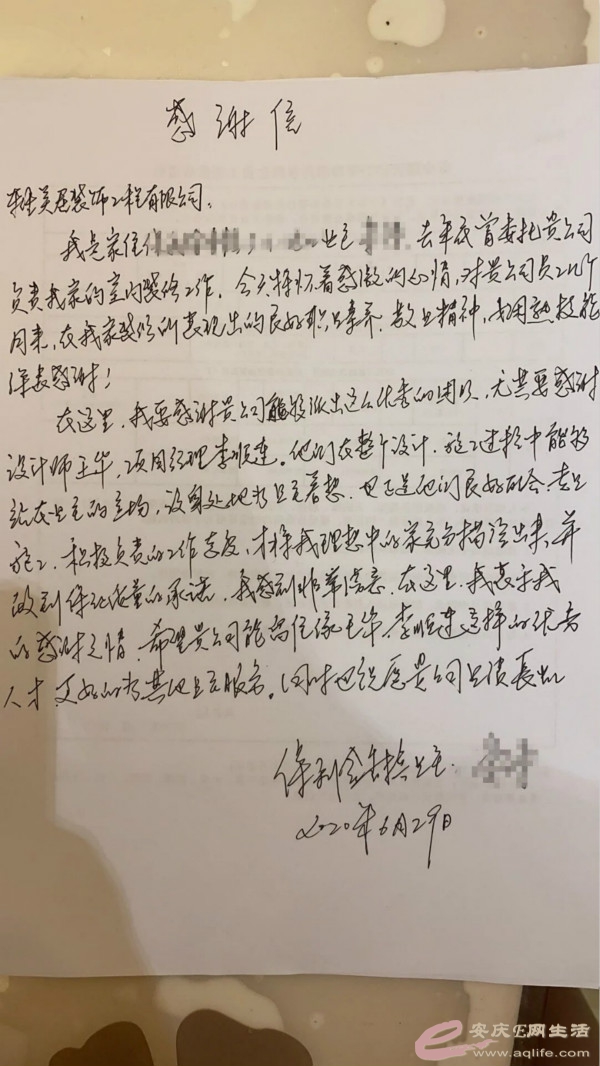 感谢信
装饰工程有限公司:
我是家住 业主 去年底曾委托贵公司
负责我家的室内装修工作。今天特怀着感激的心情,对贵公司员工几个
月来,在我家装修所表现出的良好职业素养、敬业精神、娴熟技能
深表感谢!
在这里,我要感谢贵公司能够派出这么优秀的团队,尤其要感谢
设计师王华,项目经理李顺连。他们在整个设计、施工过程中能够
站在业主的立场,设身处地为业主着想,也正是他们良好 、专业
施工、积极负责的工作态度,才将我理想中的家充分描绘出来,并
做到保证质量的承诺,我感到非常满意。在这里,我表示我
的感谢之情,希望贵公司能留住像王华、李顺连这样的优秀
人才,更好的为其他业主服务。同时也祝愿贵公司业绩长虹
保利 业主.
2020年6月29日
安庆E网生活
www.aqlife.com